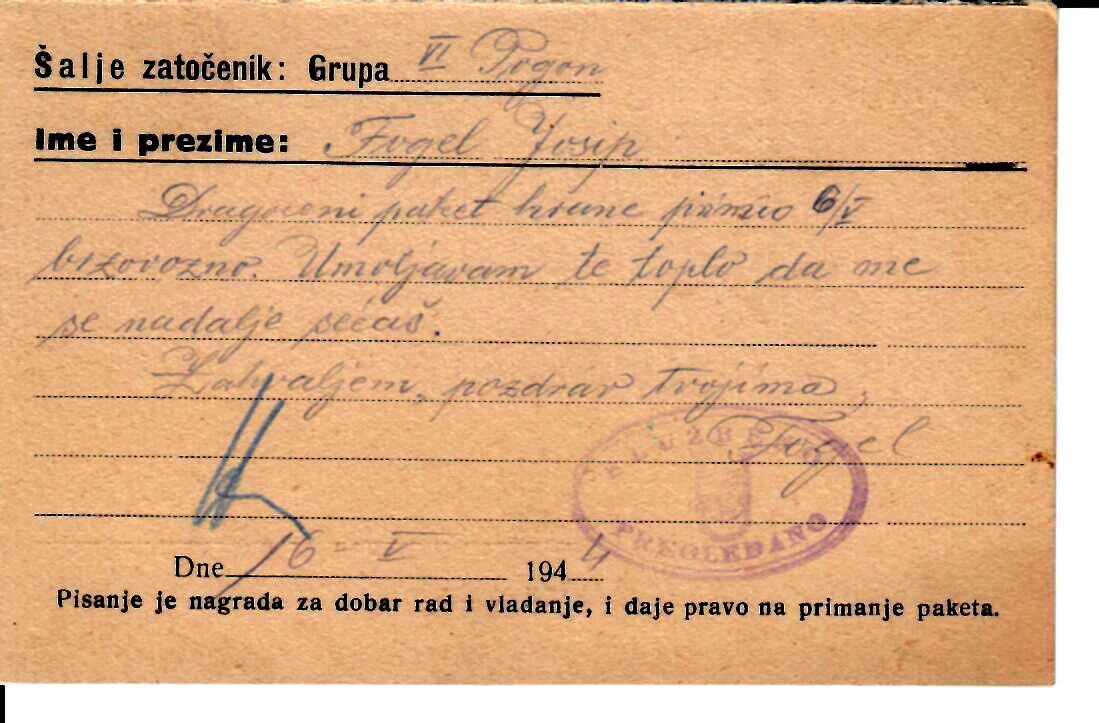 Šalje zatočenik: Grupa VI Pogon
Ime i prezime: Fogel Josip
Dragoceni paket hrane primio 6/V
brzovozno. Umoljavam te toplo da me
se nadalje sećaš.
Zahvaljem, pozdrav tvojima,
Fogel
SLUŽBENO
PREGLEDANO
Dne 16 - V 1944
Pisanje je nagrada za dobar rad i vladanje, i daje pravo na primanje paketa.